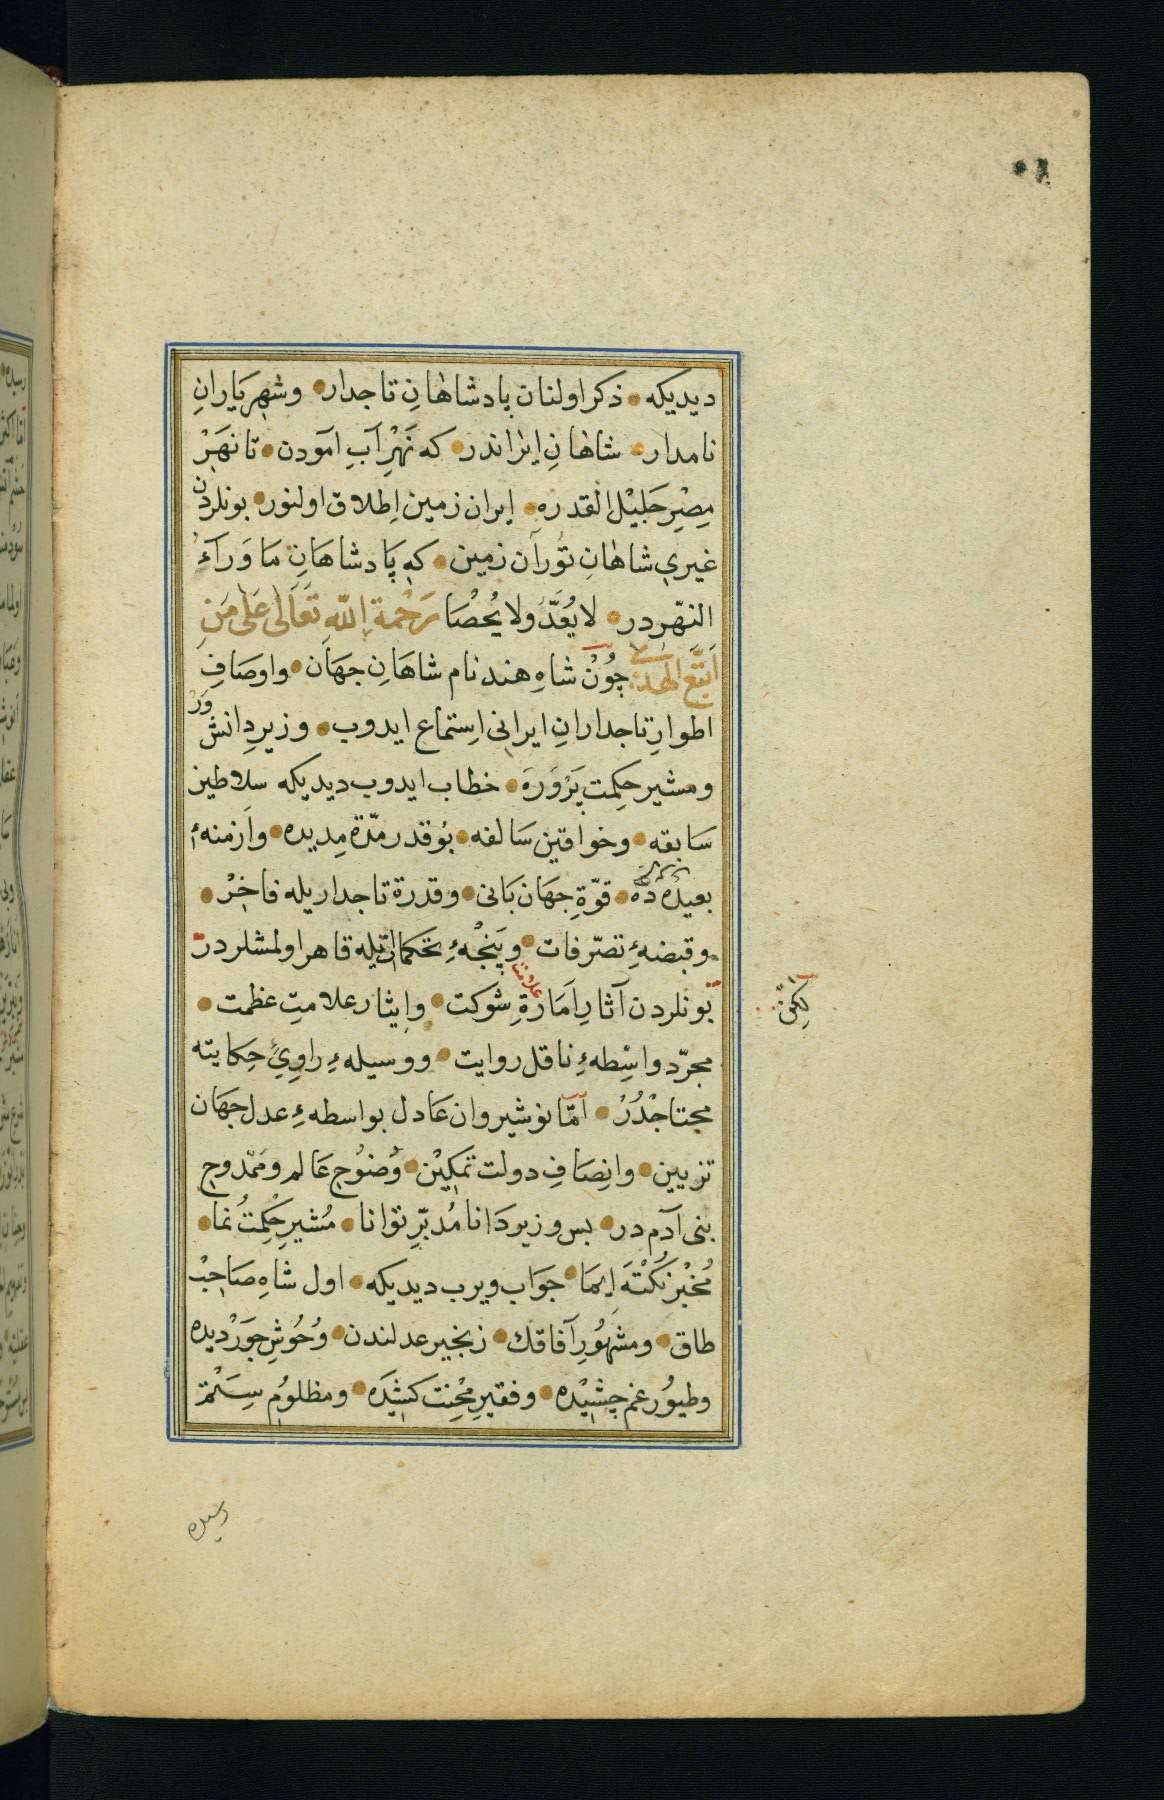 دیدیکه • ذکر اولنان پادشاهانِ تاجدار • وشهریارانِ
نامدار • شاهانِ ایراندر • که نَهْرِ آبِ آمودن • تا نهَرْ
مِصْرِ جَلیْل القدره • ایران زمین اِطلاق اولنور • بونلردن
غیری شاهانِ تُورآن زمین • که پادشاهانِ مَا وَرآءُ
النهّردر • لا یُعَدّ ولا یُحْصَا رَحْمة اللّه تَعَالٰی عَلٰی مَنِ
اَتَّبَع الهُدٰی چُوُنْ شاهِ هند نام شاهَانِ جهَان • واوصَافِ
اطوارِ تاجدارانِ ایرانی اِستماع ایدوب • وزیرِ دانش وَرْ
ومشیر حِکمت پَرْوَرَه • خطاب ایدوب دیدیکه سلاطین
سَابقه • وخواقین سَالفه • بُوقدر مدّة مِدیده • واَزمنهٔ
بعیده ده • قوّةِ جهَان بَانی • وقدرة تاجداریله فاخِرْ •
وقبضهٔ تصرّفات • وپَنجْهٔ تحکماتیله قاهر اولمشلردر
بونلردن آثارِ اَمَارَةِ علامت شوکت • واِیثار علامتِ عظمت •
لکن
مجرّد واسْطهٔ ناقل روایت • ووسیلهٔ راوِیٔ حِکایته
محتاجْدُرْ • امّا نوشیروان عَادل بواسطهٔ عدل جهَان
تزیین • واِنصَافِ دولت تمکیْن • وُضنوُح عَالم ومَمْدوح
بنی آدم در • پس وزیر دَانا مُدبّرِ توانا • مُشیرِ حِکمتُ نما •
مُخْبرِ نُکْتَه اِیمَا • جوَاب ویرب دیدیکه • اول شاهِ صَاحِبْ
طاق • ومشهُورِ آفاقك • زنجیر عدلندن • وُحُوشِ جَوَرْ دیده
وطیُور غم چشِیْده • وفقیرِ مِحْنت کشیدَه • ومظلوُم سِتَمْ
رسیده